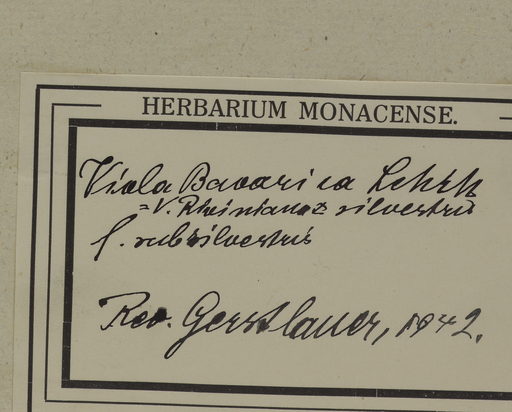 HERBARIUM MONACENSE.
Viola Bavarica Schrk
= V. Riviniana x silvestris
f. subsilvestris
Rev. Gerstlauer, 1942.